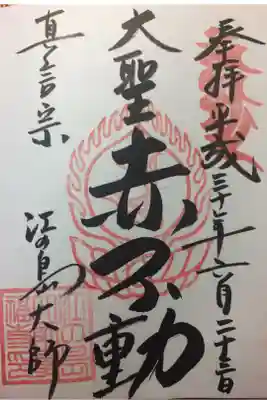 奉拝 平成三十年六月二十三日
大聖赤不動
真言宗
江の島大師